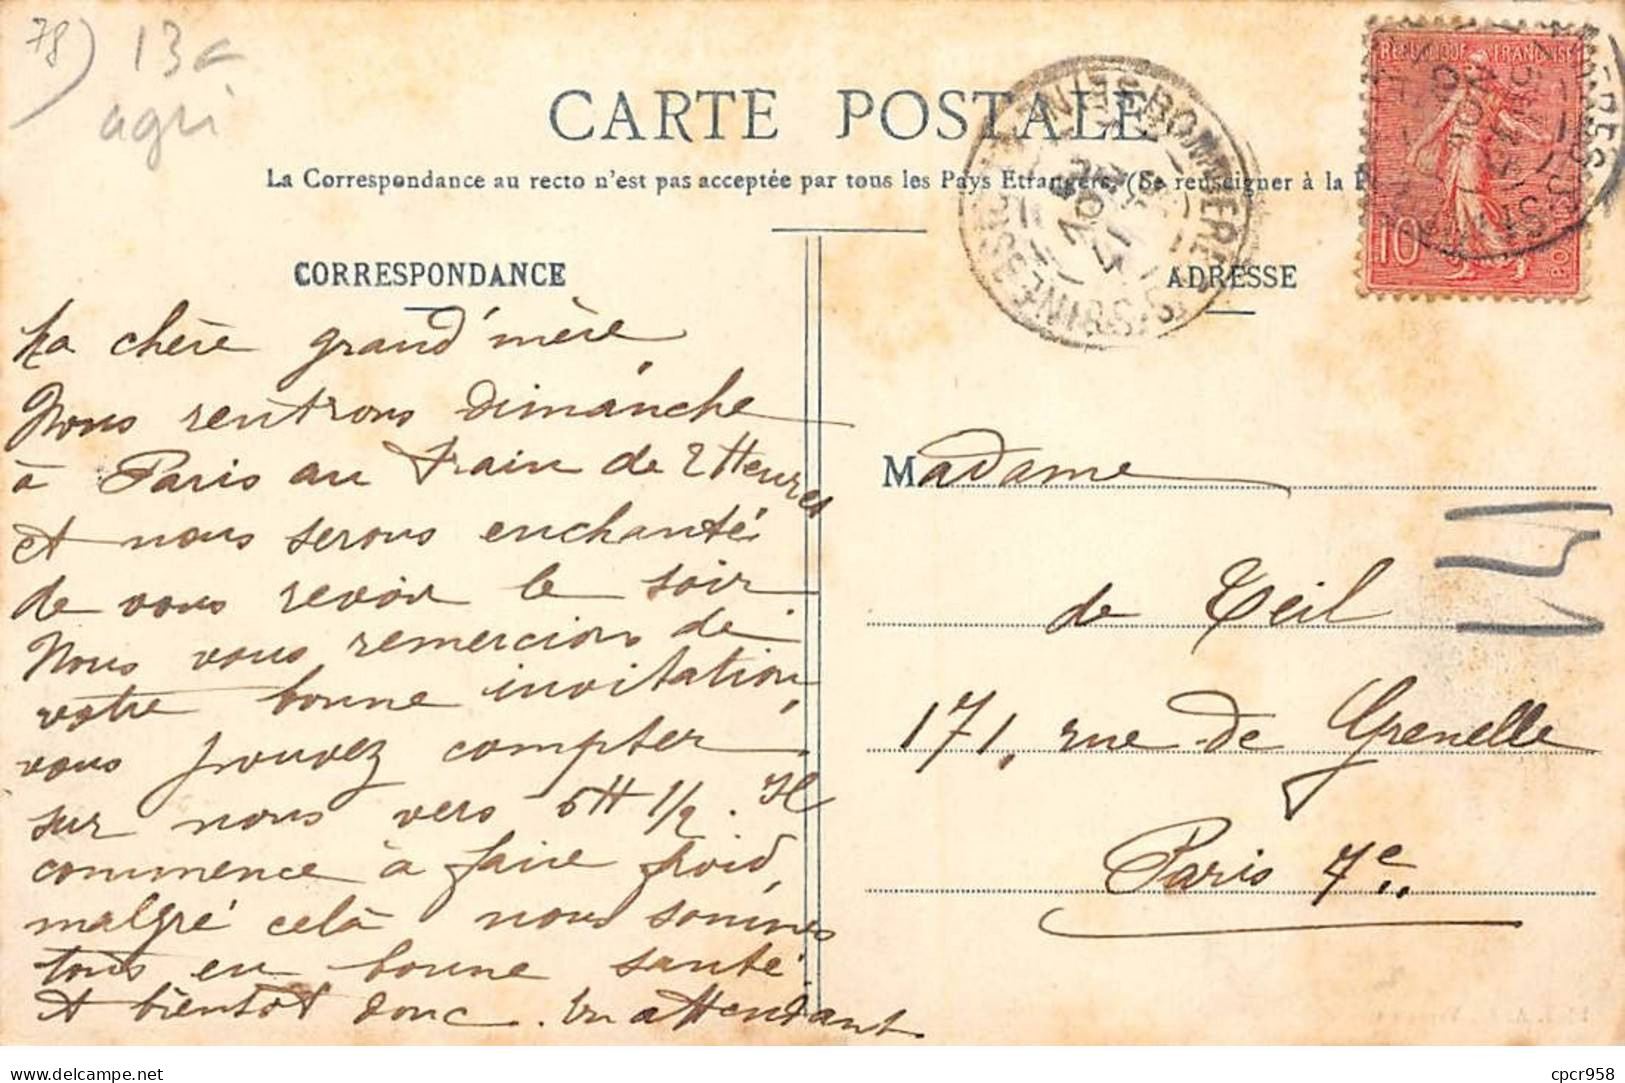 78) 13€
agri
CARTE POSTALE
La Correspondance au recto n'est pas acceptée par tous les Pays Etrangers. (Se renseigner à la
CORRESPONDANCE
ADRESSE
REPUBLIQUE FRANÇAISE
10
Ma chère grand'mère,
Nous rentrons dimanche
à Paris au train de 2 Heures
et nous serons enchantés
de vous revoir le soir
Nous vous remercions de
votre bonne invitation,
vous pouvez compter
sur nous vers 6H 1/2. Il
commence à faire froid,
malgré celà nous sommes
tous en bonne santé.
A bientôt donc. En attendant
Madame
de Teil
171, rue de Grenelle
Paris 7e
cpcr958